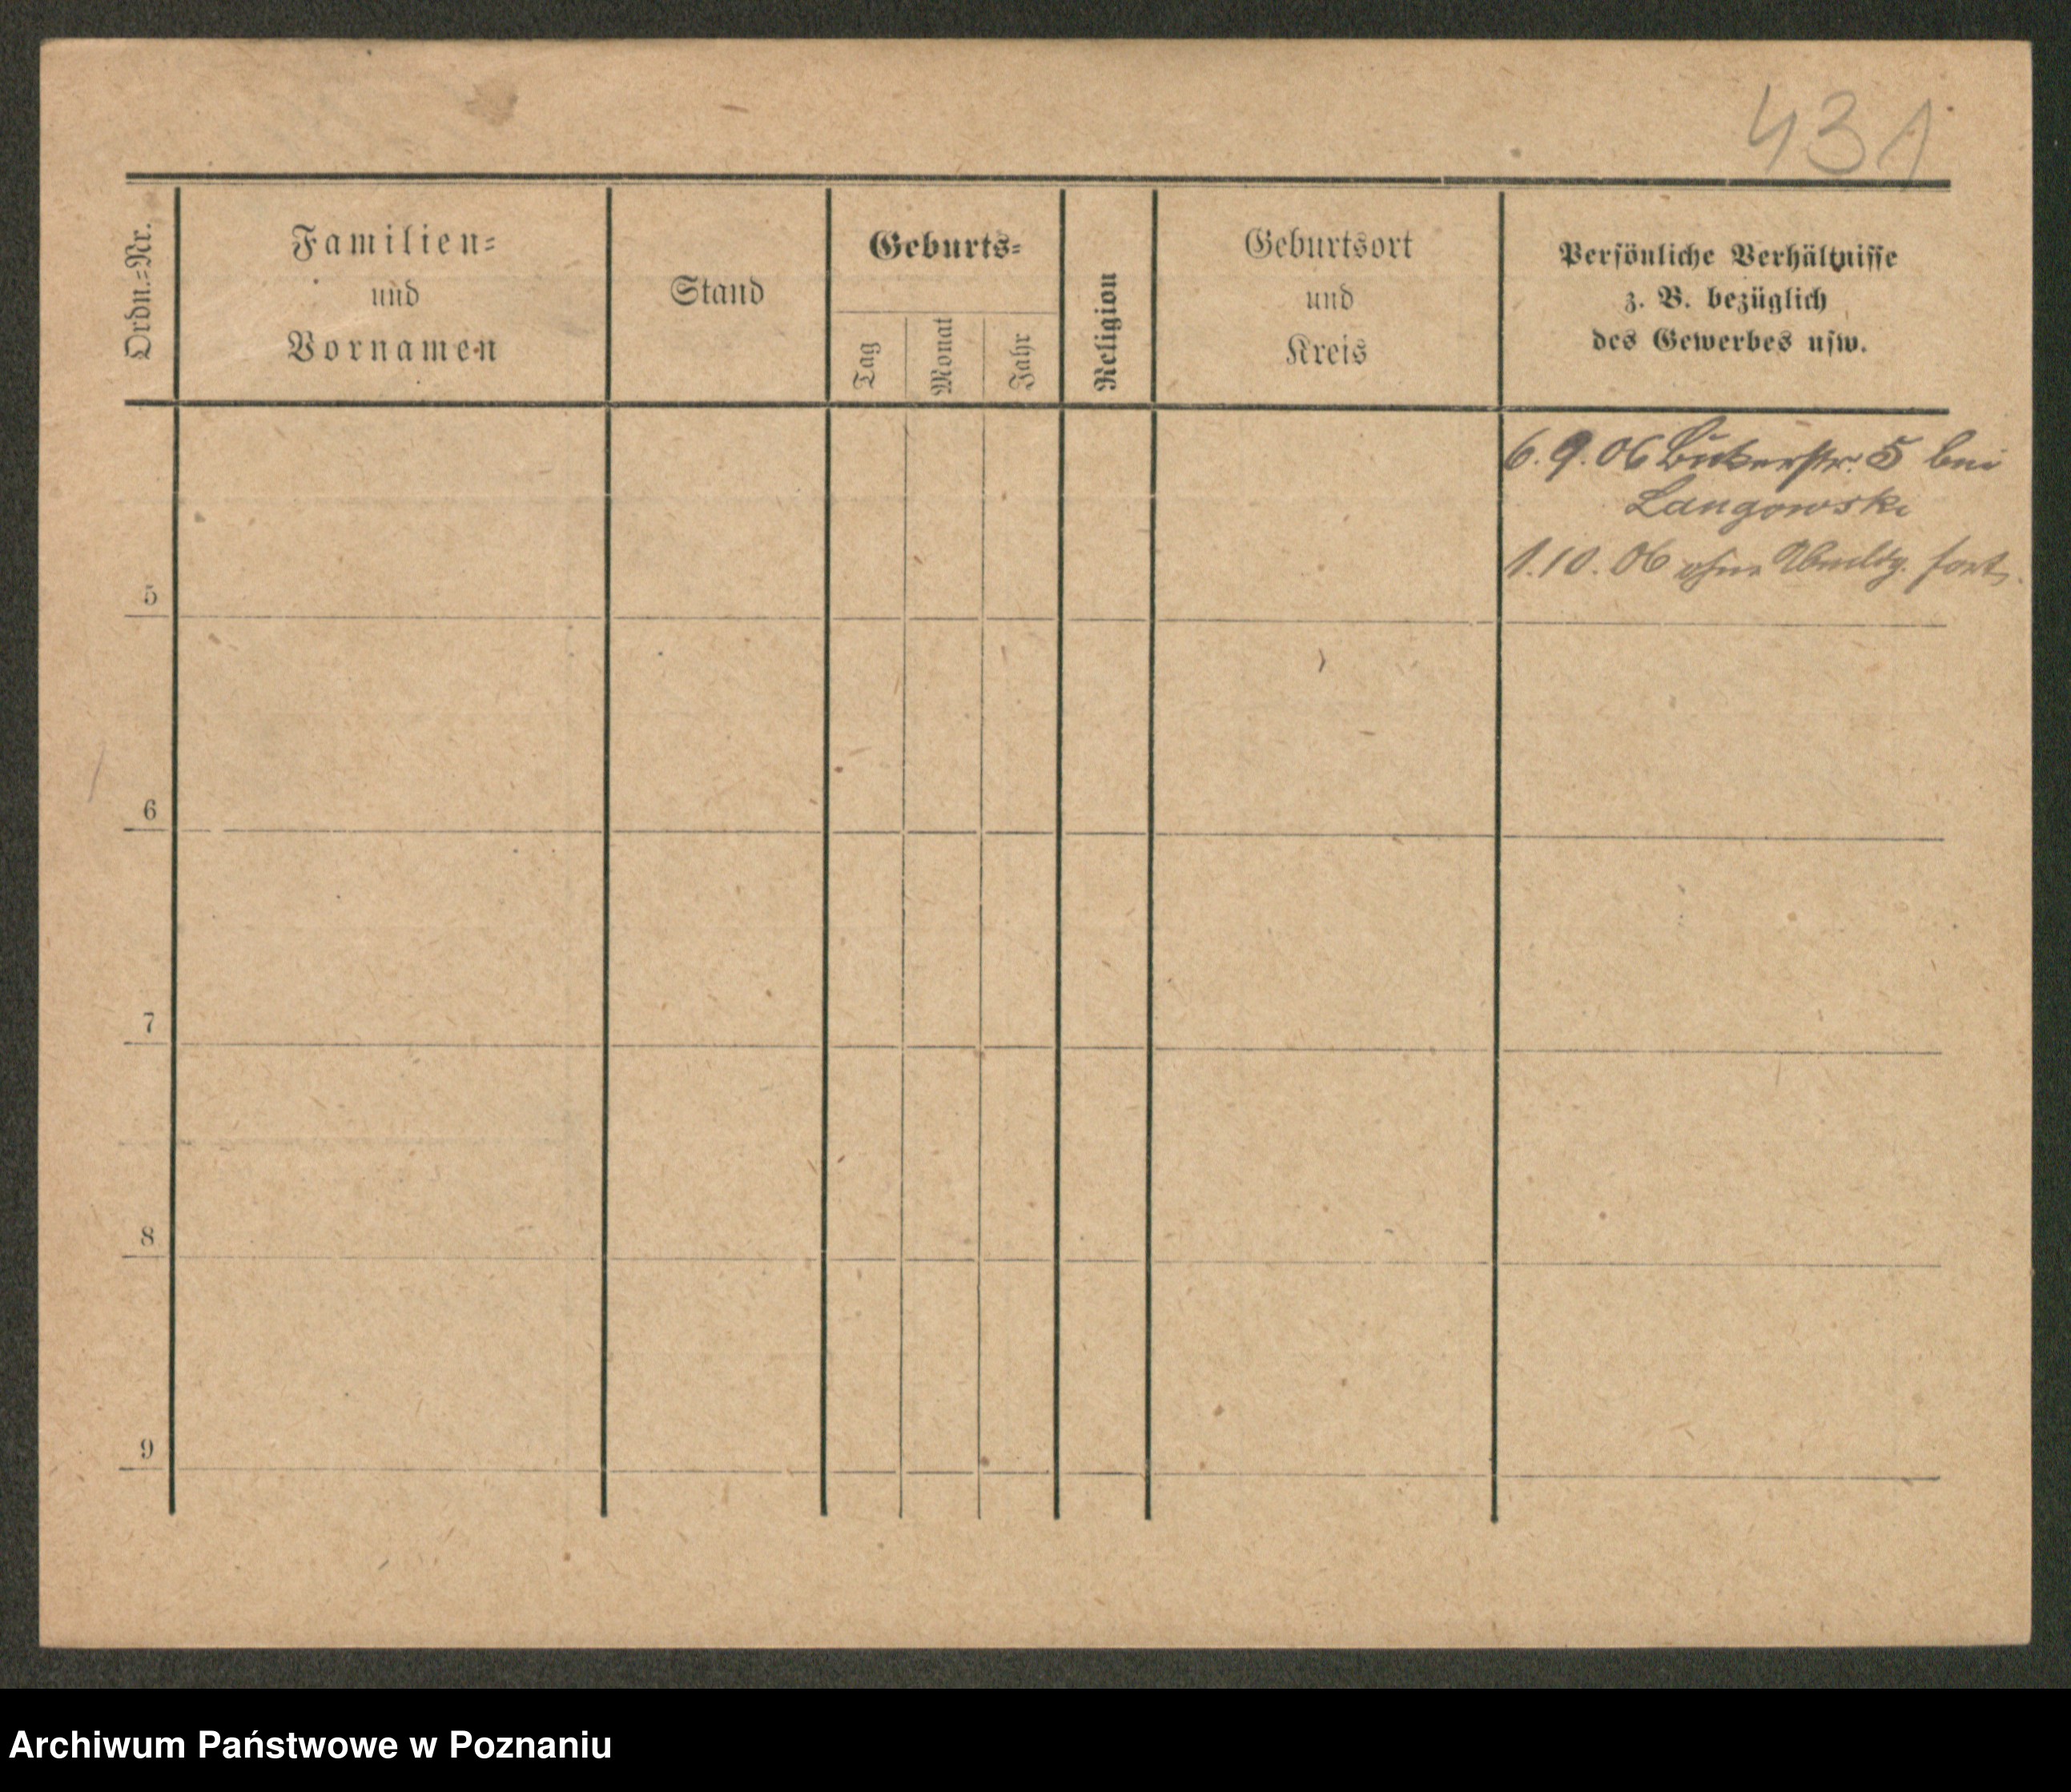 431
Ordn.=Nr.
Familien=
und
Vornamen
Stand
Geburts=
Tag
Monat
Jahr
Religion
Geburtsort
und
Kreis
Persönliche Verhältnisse
z. B. bezüglich
des Gewerbes usw.
6.9.06 Bukerstr. 5 bei
Langowski
1.10.06 ohne fort.
5
6
7
8
9
Archiwum Państwowe w Poznaniu